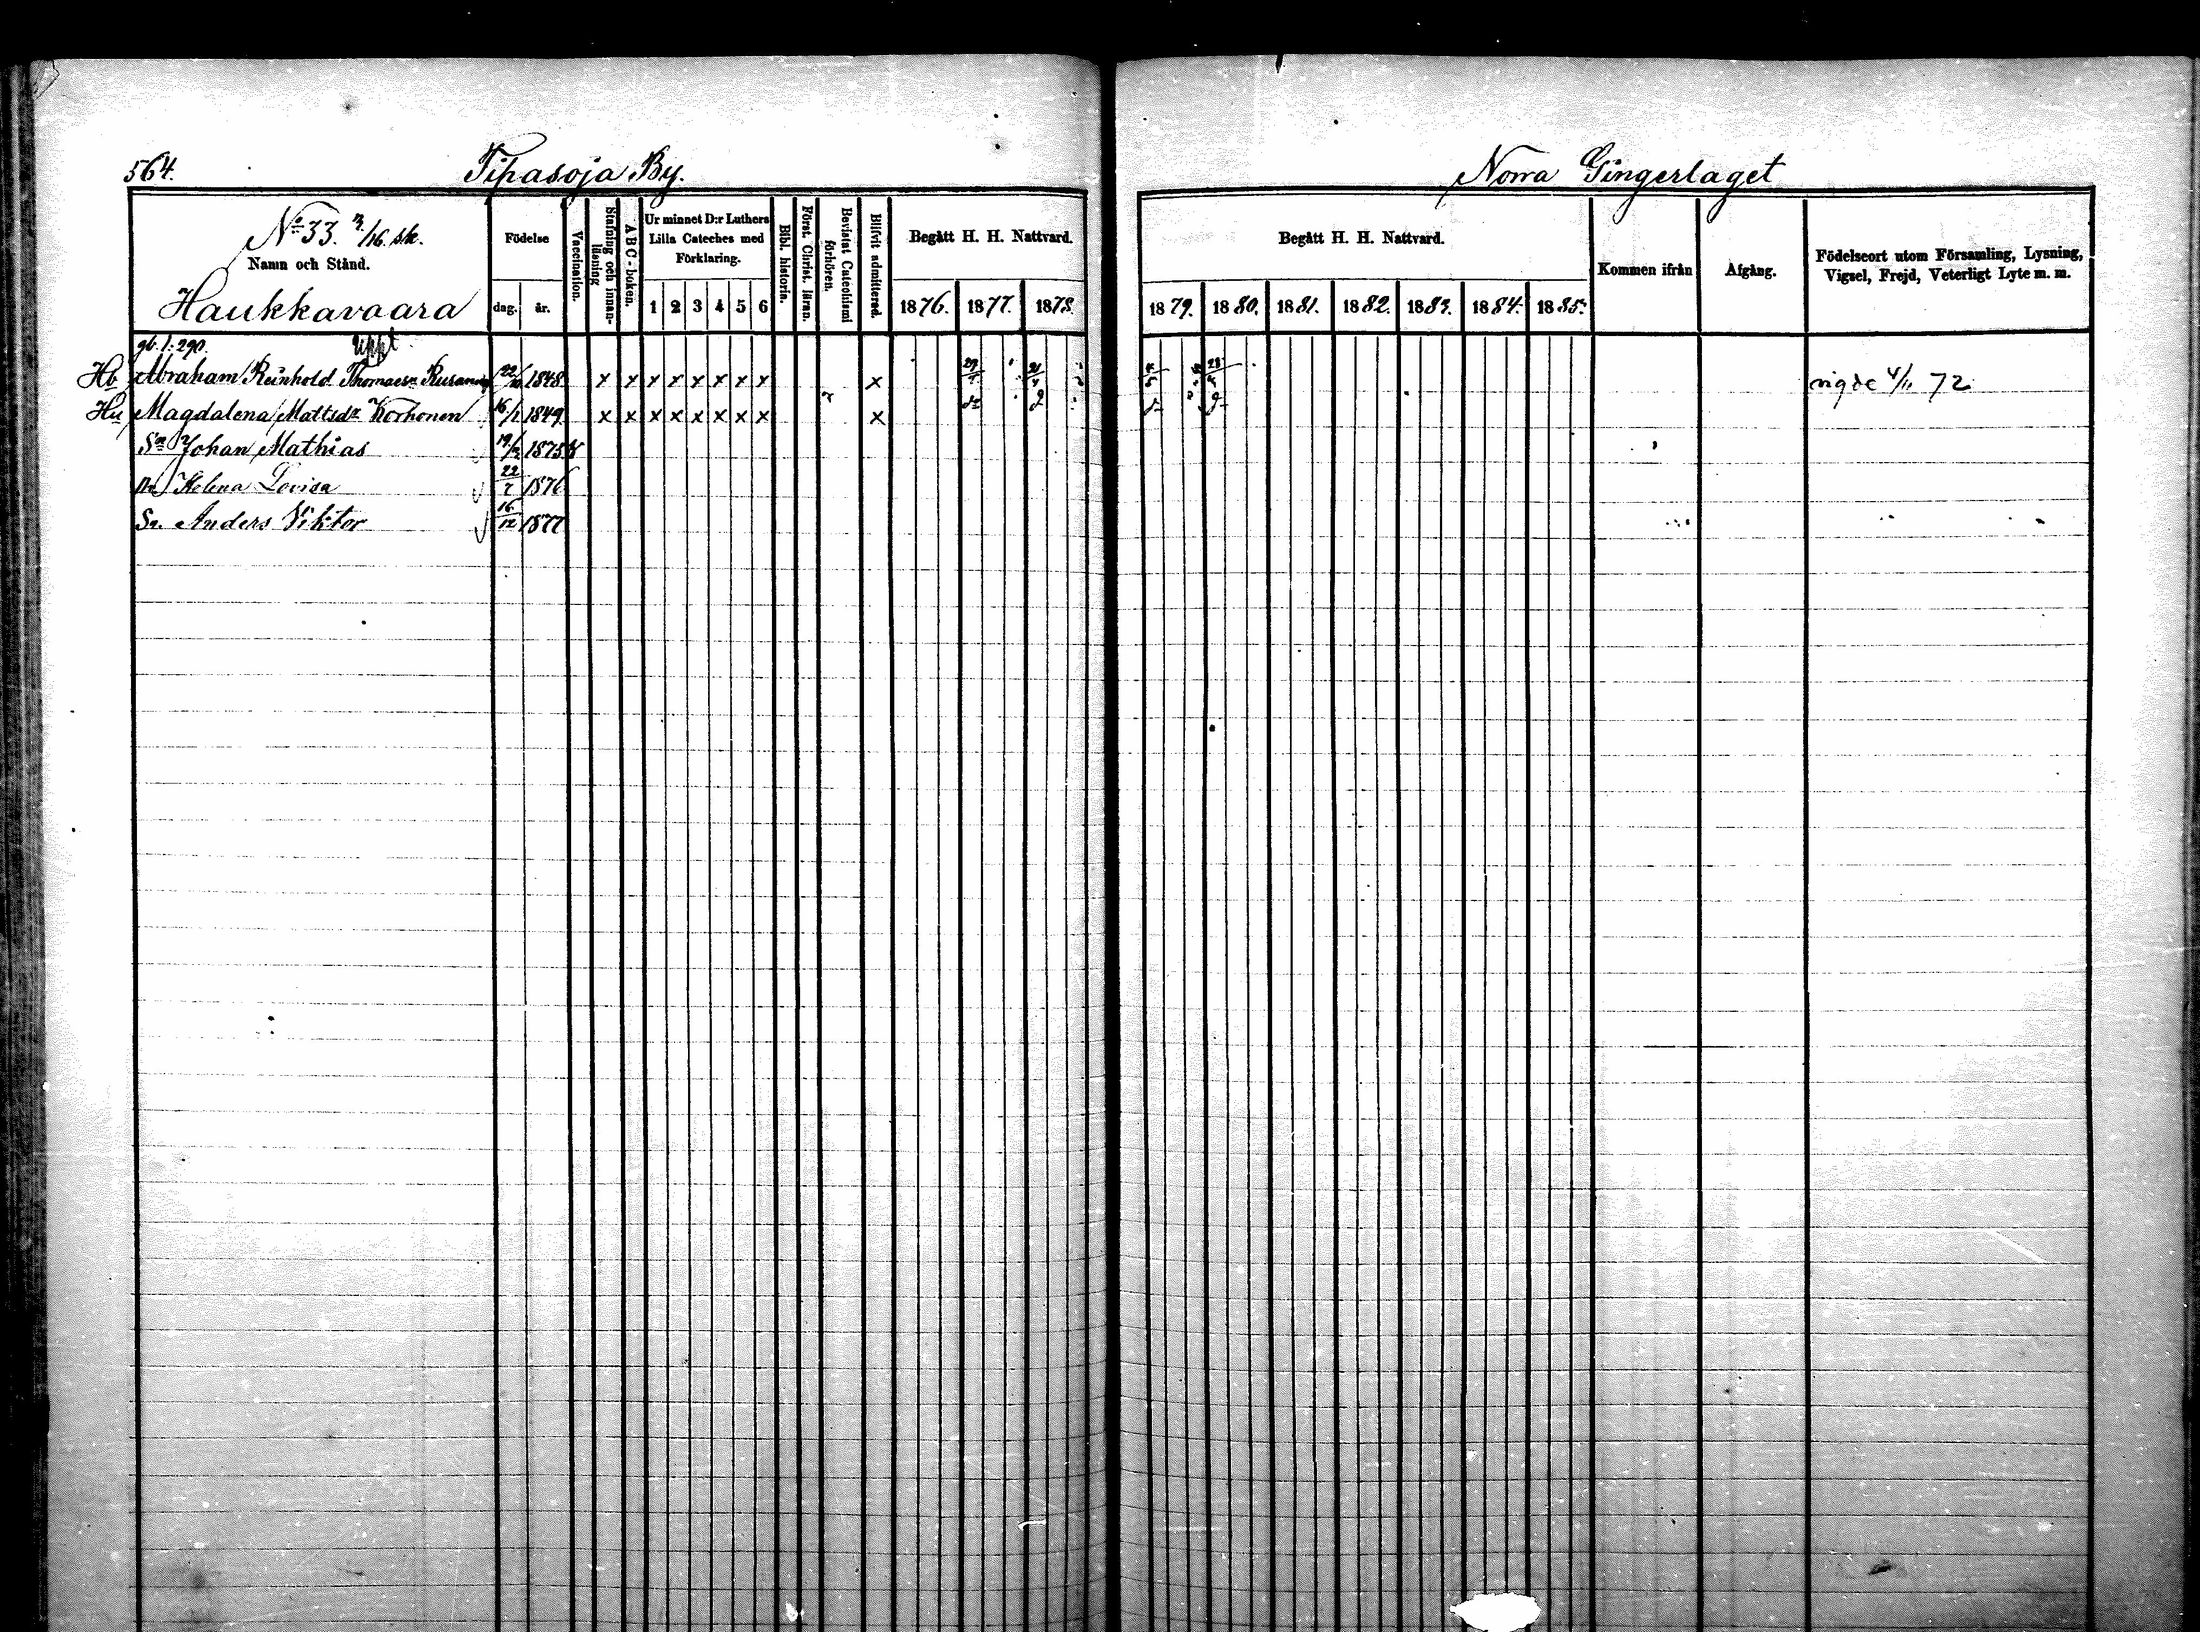 564. Tipasoja By. Norra Gingerlaget
No 33. /16. sk.
Namn och Stånd.
Haukkavaara
Födelse
dag. år.
Vaccination.
Stafning och innanläsning
ABC-boken.
Ur minnet D:r Luthers Lilla Cateches med Förklaring.
1 2 3 4 5 6
Bibl. historia.
Först. Christ. läran.
Bevistat Catechismi förhören.
Blifvit admitterad.
Begått H. H. Nattvard.
1876. 1877. 1878.
Begått H. H. Nattvard.
1879. 1880. 1881. 1882. 1883. 1884. 1885.
Kommen ifrån
Afgång.
Födelseort utom Församling, Lysning, Vigsel, Frejd, Veterligt Lyte m. m.
gb. 1: 290.
Hb Abraham Reinhold Thomaess. 22/10 1848. x x x x x x x x x vigde 4/11 72
Hu Magdalena Mattsdr Korhonen 16/1 1849. x x x x x x x x x
Sn Johan Mathias 1875
Helena Lovisa 22 1876
Sn. Anders Viktor 16/12 1877